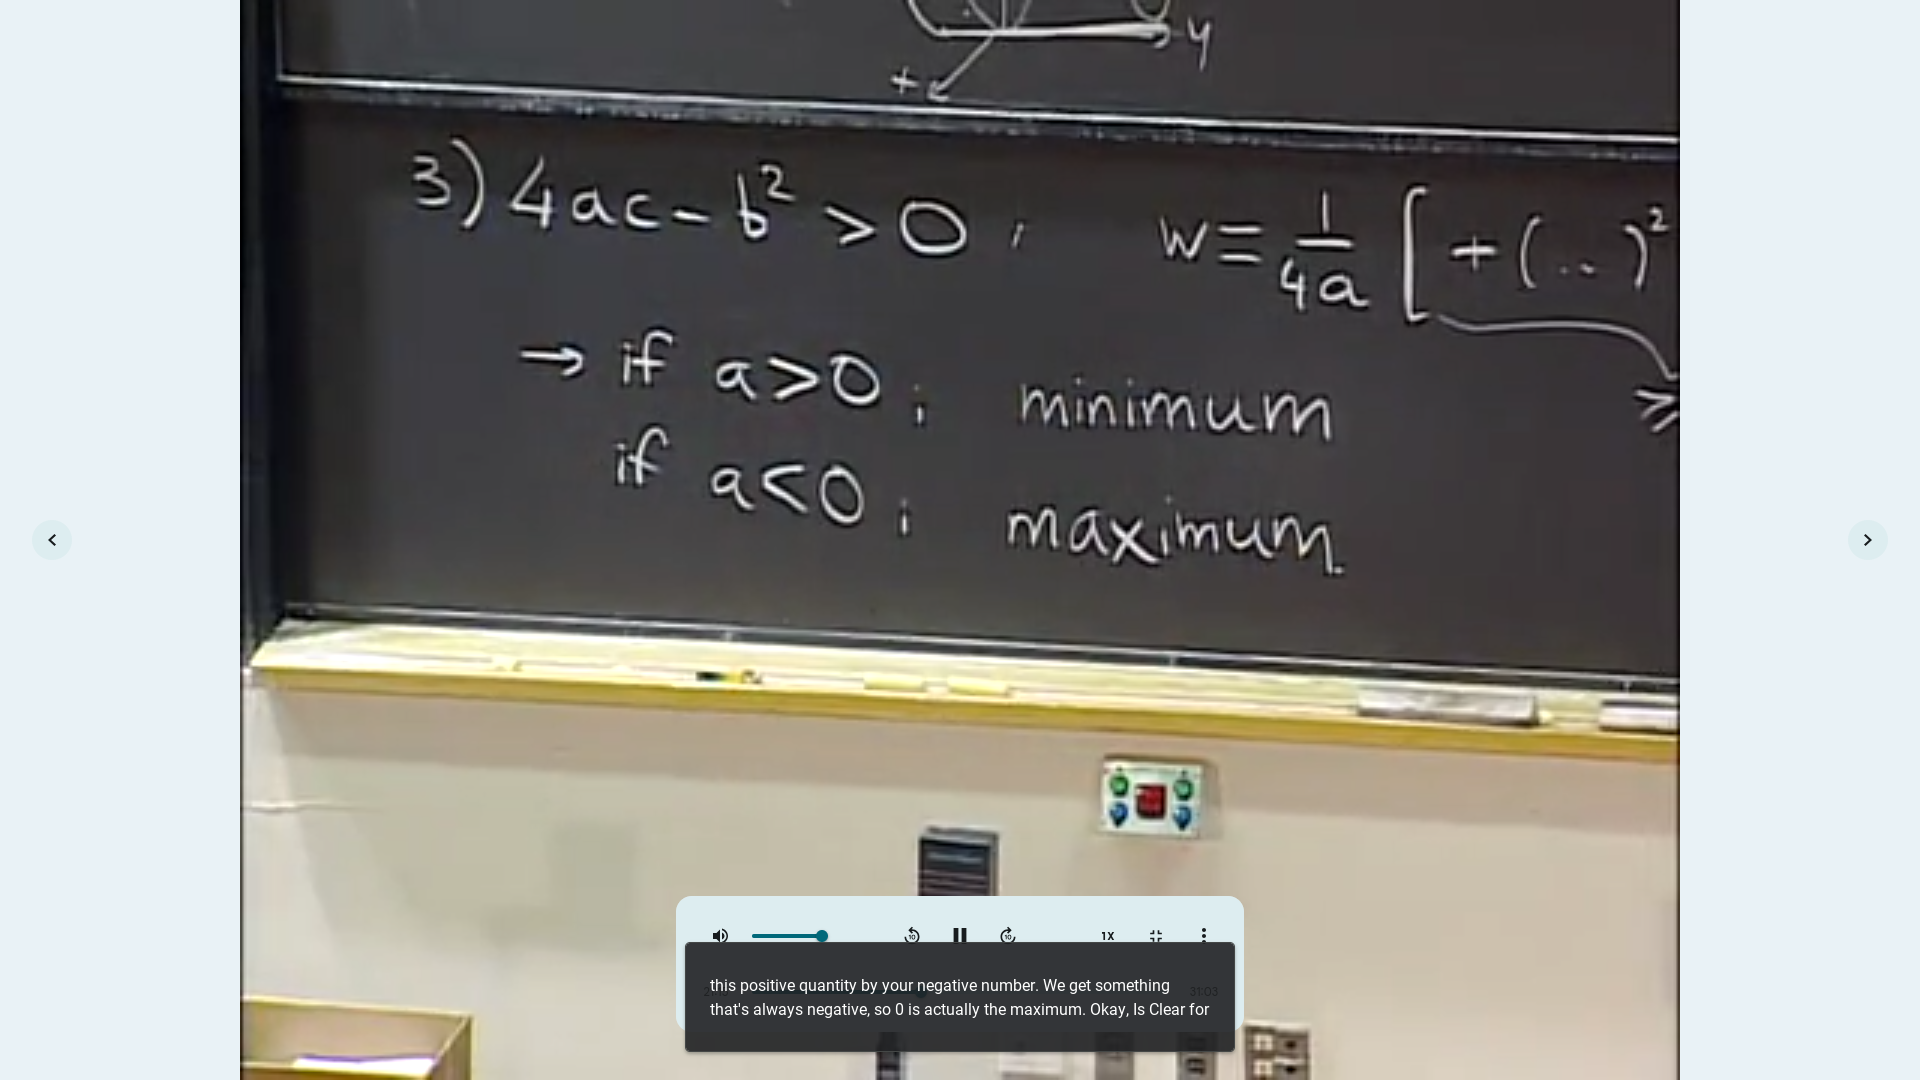 y
+
3) 4ac - b² > 0 ; w ≡ 1/4a [ + (..)²
→ if a > 0 ; minimum
≥
if a < 0 ; maximum.
1X
31:03
this positive quantity by your negative number. We get something
that's always negative, so 0 is actually the maximum. Okay, Is Clear for